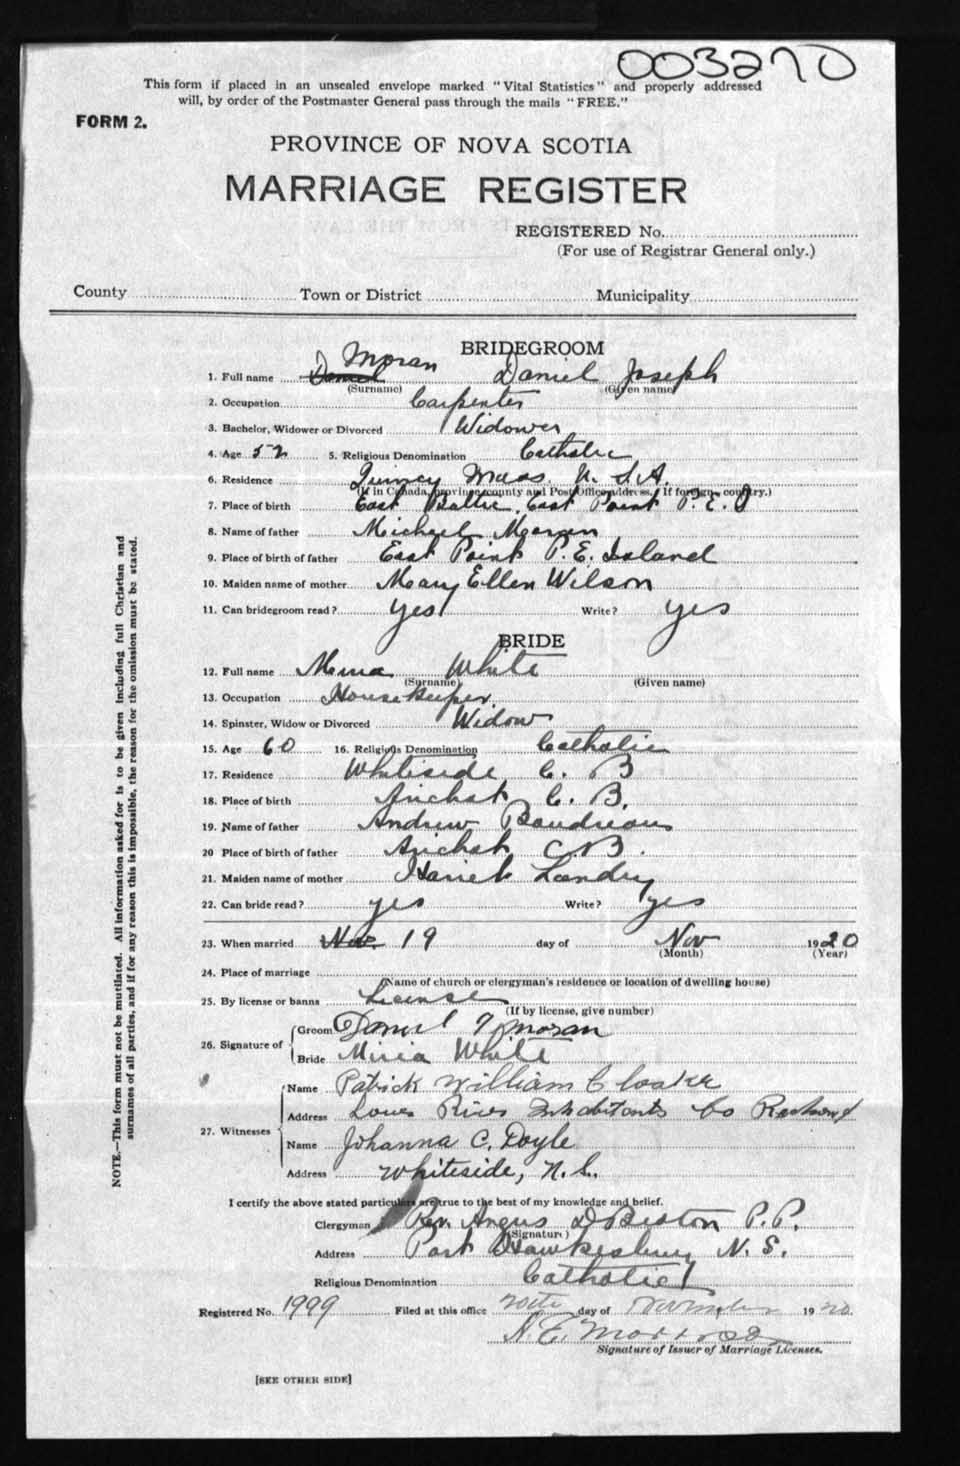 003270
This form if placed in an unsealed envelope marked "Vital Statistics" and properly addressed
will, by order of the Postmaster General pass through the mails "FREE."
FORM 2.
PROVINCE OF NOVA SCOTIA
MARRIAGE REGISTER
REGISTERED No.
(For use of Registrar General only.)
County Town or District Municipality
BRIDEGROOM
Moran
1. Full name Daniel Daniel Joseph
(Surname) (Given name)
2. Occupation Carpenter
3. Bachelor, Widower or Divorced Widower
4. Age 52 5. Religious Denomination Catholic
6. Residence Quincy Mass U.S.A.
(If in Canada, province, county and Post Office address. If foreign, country.)
7. Place of birth East Baltic, East Point P.E.I
8. Name of father Michael Moran
9. Place of birth of father East Point P.E. Island
10. Maiden name of mother Mary Ellen Wilson
11. Can bridegroom read? yes Write? yes
BRIDE
12. Full name White
(Surname) (Given name)
13. Occupation Housekeeper
14. Spinster, Widow or Divorced Widow
15. Age 60 16. Religious Denomination Catholic
17. Residence Whiteside C. B
18. Place of birth Arichat C. B.
19. Name of father Andrew Boudreau
20 Place of birth of father Arichat C.B.
21. Maiden name of mother Hariet Landry
22. Can bride read? yes Write? yes
23. When married Nov. 19 day of Nov 1920
(Month) (Year)
24. Place of marriage
(Name of church or clergyman's residence or location of dwelling house)
25. By license or banns License
(If by license, give number)
26. Signature of
Groom Daniel J Moran
Bride White
27. Witnesses
Name Patrick William Cloake
Address River Inhabitants Co Richmond
Name Johanna C. Doyle
Address Whiteside, N.S.
I certify the above stated particulars are true to the best of my knowledge and belief.
Clergyman Rev. Angus D Beaton P.P.
(Signature)
Address Port Hawkesbury N. S.
Religious Denomination Catholic
Registered No. 1999 Filed at this office 20th day of November 1920
Signature of Issuer of Marriage Licenses.
[SEE OTHER SIDE]
NOTE.—This form must not be mutilated. All information asked for is to be given including full Christian and
surnames of all parties, and if for any reason this is impossible, the reason for the omission must be stated.